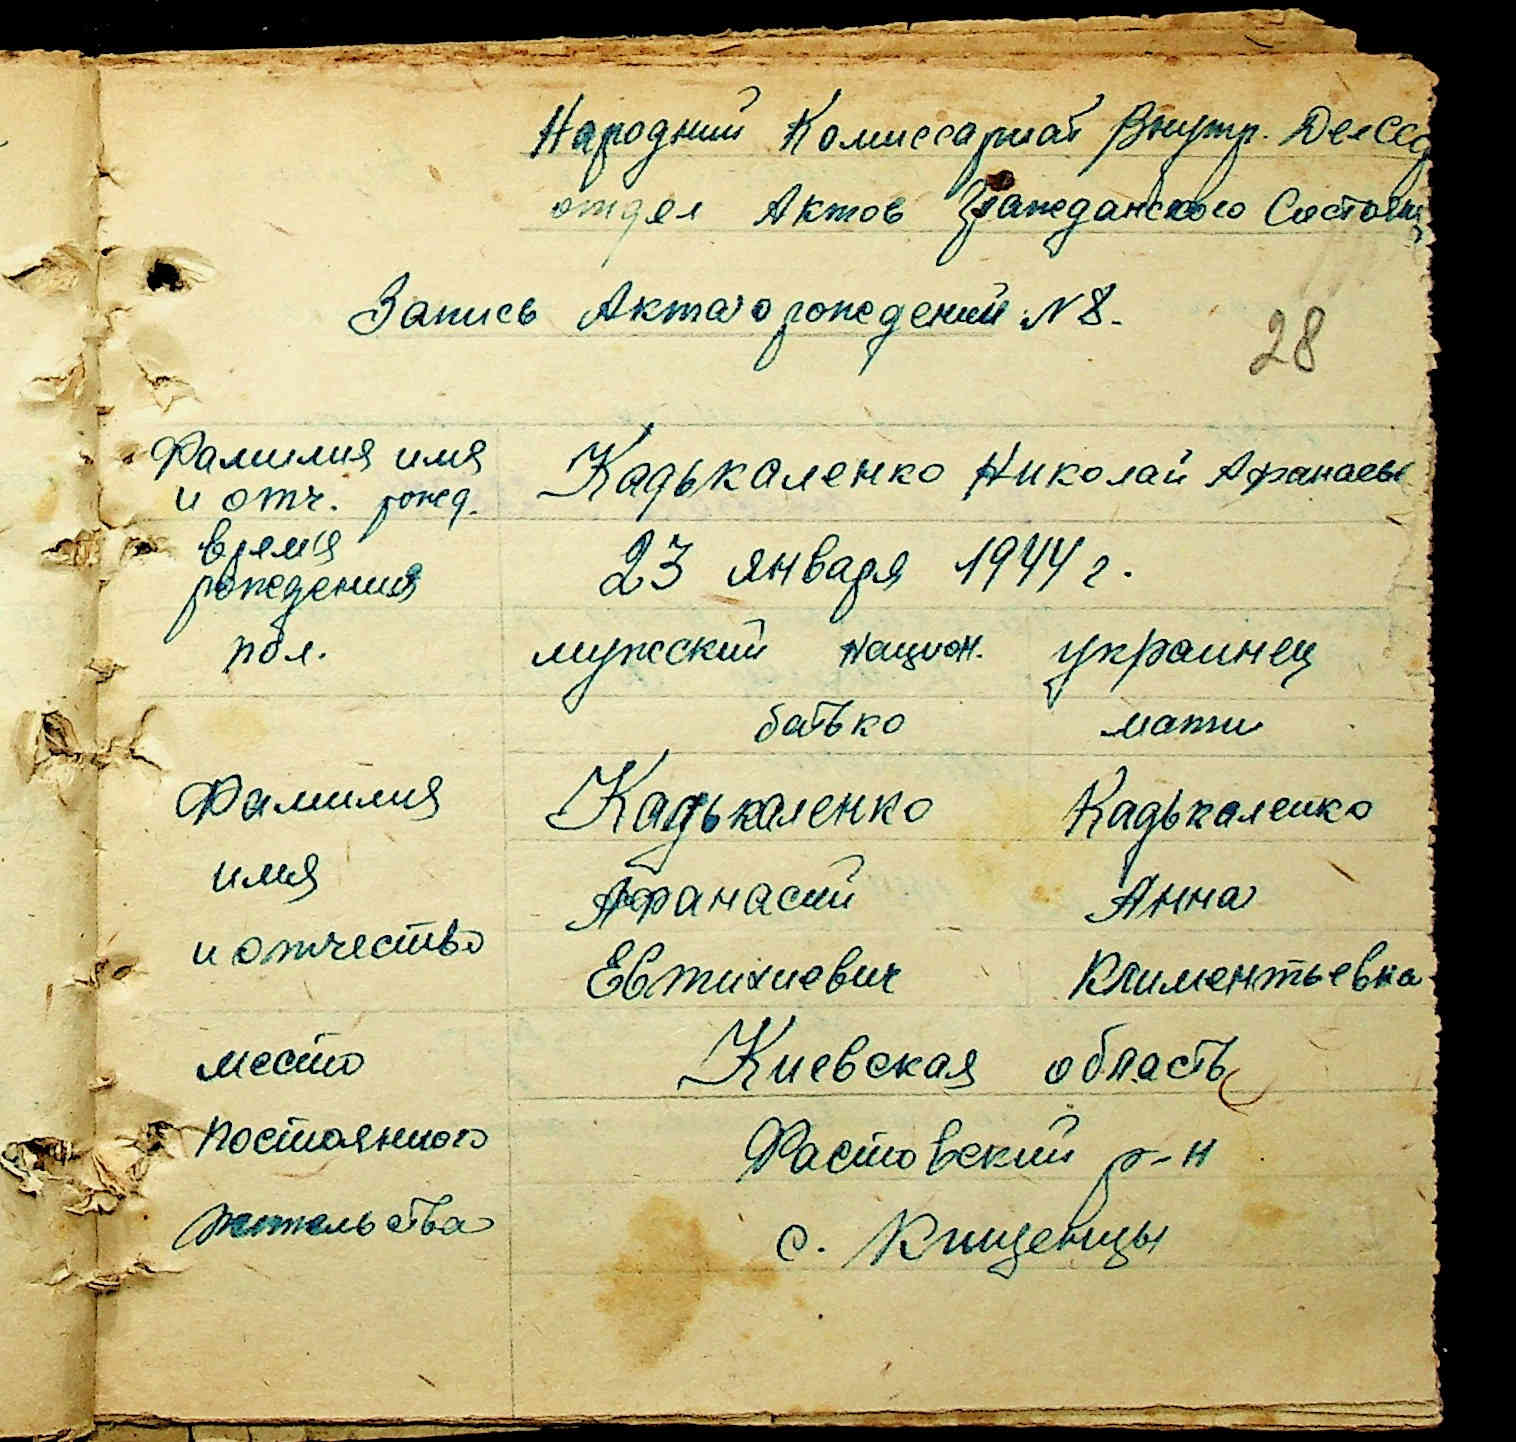 Народний Комиссариат Внутр. Дел ССР
отдел Актов Гражданского Состоян
Запись Акта о рождении N 8.
28
Фамилия имя и отч. рожд.
Кадькаленко Николай Афанаеви
время рождения
23 января 1944 г.
пол.
мужский национ. украинец
батько мати
Фамилия Кадькаленко Кадькаленко
имя Афанасий Анна
и отчество Евтихиевич Климентьевна
место Киевская область
постоянного Фастовский р-н
жительства с. Кищенцы